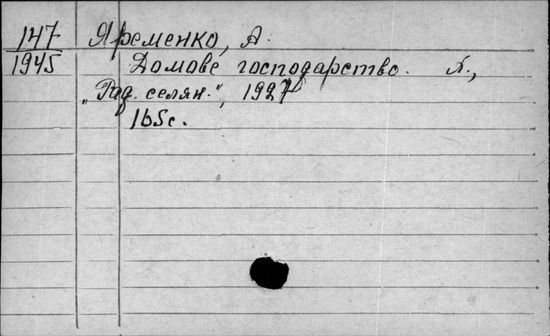 147 Яременко, А.
1945 Домове господарство. Х.,
"Рад. селян.", 1927
165с.